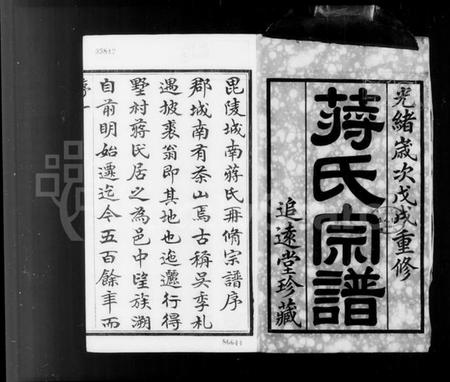 光緒歲次戊戌重修
蔣氏宗譜
追遠堂珍藏
毘陵城南蔣氏冊脩宗譜序
郡城南有茶山焉古稱吳季札
遇披裘翁即其地也迤邐行得
墅村蔣氏居之為邑中望族溯
自前明始遷迄今五百餘年而
序 一